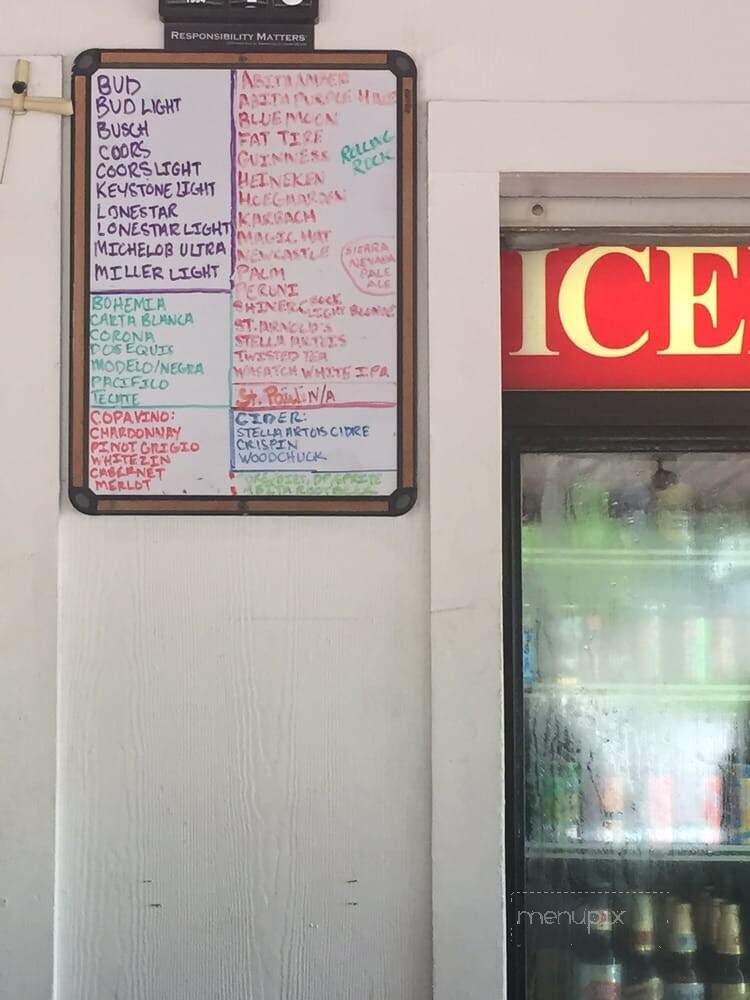 RESPONSIBILITY MATTERS
BUD
BUD LIGHT
BUSCH
COORS
COORS LIGHT
KEYSTONE LIGHT
LONESTAR
LONESTAR LIGHT
MICHELOB ULTRA
MILLER LIGHT
BOHEMIA
CARTA BLANCA
CORONA
DOS EQUIS
MODELO/NEGRA
PACIFICO
TECATE
COPAVINO:
CHARDONNAY
PINOT GRIGIO
WHITE ZIN
CABERNET
MERLOT
ABITA AMBER
ABITA PURPLE HAZE
BLUE MOON
FAT TIRE
GUINNESS
HEINEKEN
HOEGAARDEN
KARBACH
MAGIC HAT
NEWCASTLE
PALM
PERONI
SHINER BOCK
LIGHT BLONDE
ST. ARNOLD'S
STELLA ARTOIS
TWISTED TEA
WASATCH WHITE IPA
ROLLING
ROCK
SIERRA
NEVADA
PALE
ALE
St. Pauli N/A
CIDER:
STELLA ARTOIS CIDRE
CRISPIN
WOODCHUCK
SPRITE
ABITA ROOT BEER
ICE
menupix